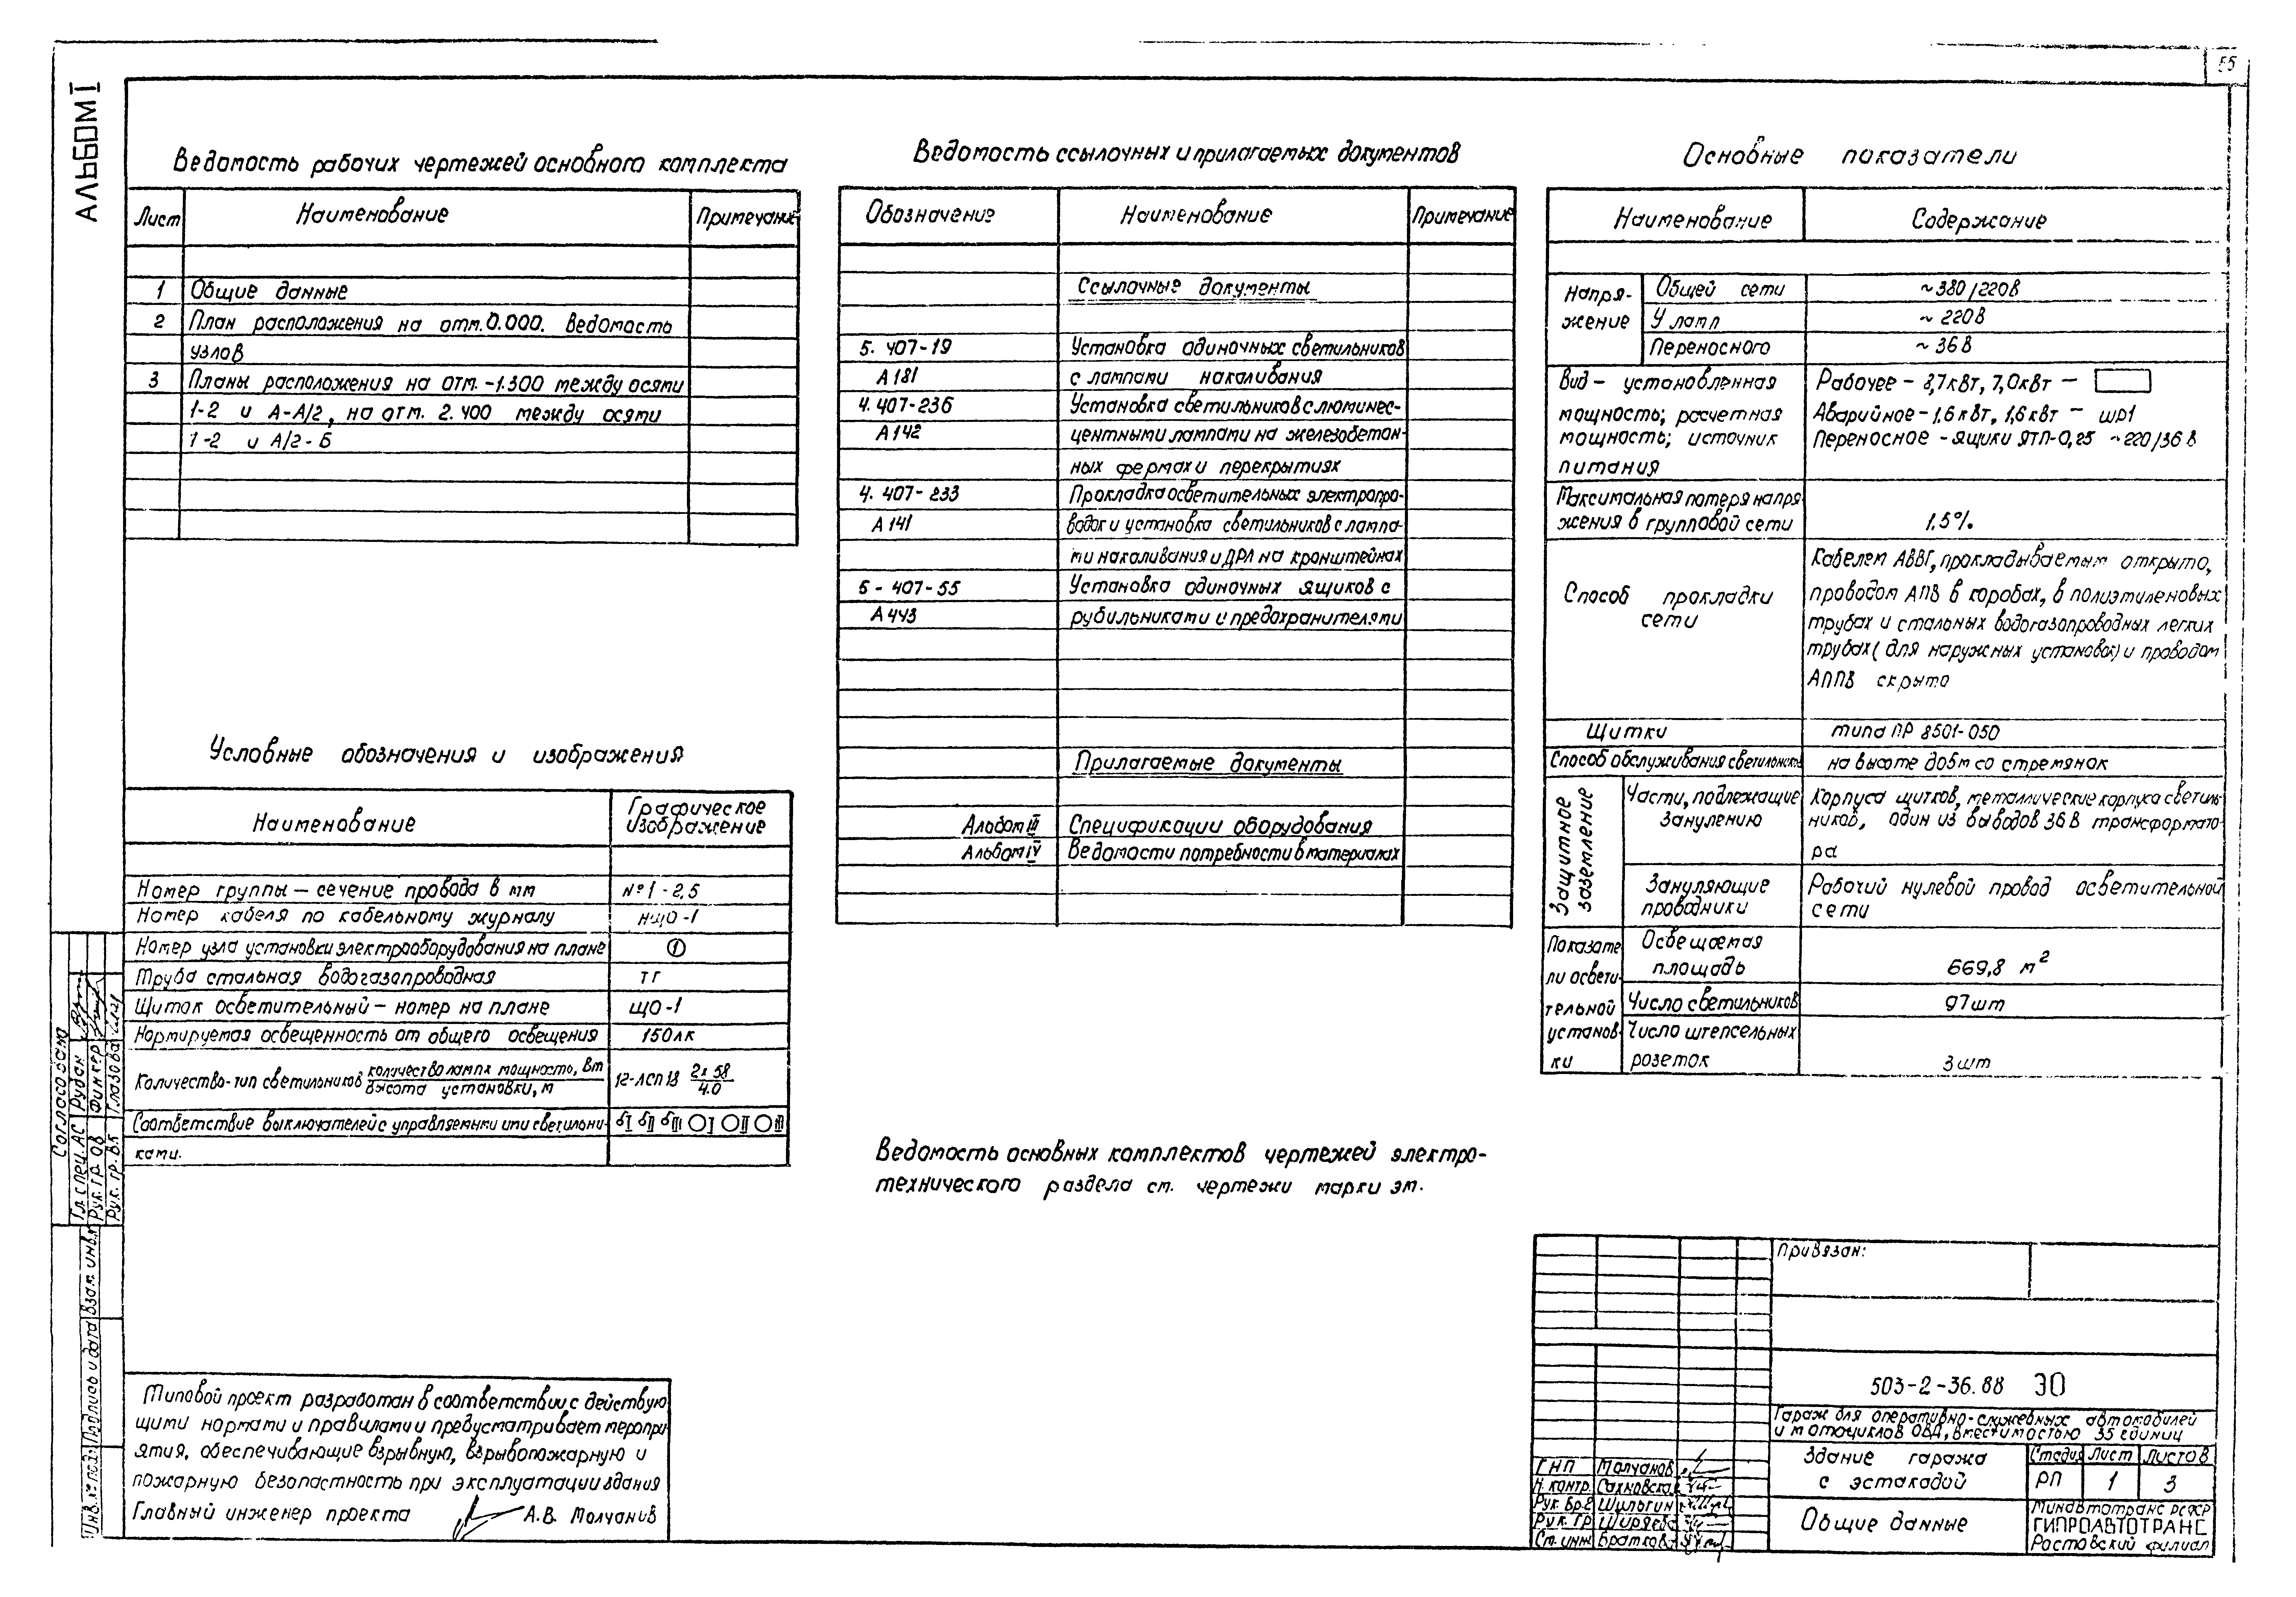 55
АЛЬБОМ I
Ведомость рабочих чертежей основного комплекта
Лист Наименование Примечание
1 Общие данные
2 План расположения на отм. 0.000. Ведомость
узлов
3 Планы расположения на отм. -1.300 между осями
1-2 и А-А/2, на отм. 2.400 между осями
1-2 и А/2-Б
Условные обозначения и изображения
Наименование Графическое
изображение
Номер группы — сечение провода в мм №1-2,5
Номер кабеля по кабельному журналу НЩО-1
Номер узла установки электрооборудования на плане 1
Труба стальная водогазопроводная ТГ
Щиток осветительный — номер на плане ЩО-1
Нормируемая освещенность от общего освещения 150лк
Количество-тип светильников количество ламп х мощность, Вт 12-ЛСП18 2х58
высота установки, м 4.0
Соответствие выключателей с управляемыми ими светильни- I II III I II III
ками.
Типовой проект разработан в соответствии с действую
щими нормами и правилами и предусматривает меропри
ятия, обеспечивающие взрывную, взрывопожарную и
пожарную безопасность при эксплуатации здания
Главный инженер проекта А.В. Молчанов
Ведомость ссылочных и прилагаемых документов
Обозначение Наименование Примечание
Ссылочные документы
5. 407-19 Установка одиночных светильников
А181 с лампами накаливания
4. 407-236 Установка светильников с люминес-
А142 центными лампами на железобетон-
ных фермах и перекрытиях
4. 407-233 Прокладка осветительных электропро-
А141 водок и установка светильников с лампа-
ми накаливания и ДРЛ на кронштейнах
5-407-55 Установка одиночных ящиков с
А443 рубильниками и предохранителями
Прилагаемые документы
Альбом III Спецификации оборудования
Альбом IV Ведомости потребности в материалах
Ведомость основных комплектов чертежей электро-
технического раздела см. чертежи марки эм.
Основные показатели
Наименование Содержание
Напря-
жение
Общей сети ~380/220В
У ламп ~220В
Переносного ~36В
Вид — установленная Рабочее — 7кВт, 7,0кВт —
мощность; расчетная Аварийное — 1,6кВт, 1,6кВт — шр1
мощность; источник Переносное - ящики ЯТП-0,25 ~220/36 В
питания
Максимальная потеря напря
жения в групповой сети 1,5%
Способ прокладки
сети
Кабелем АВВГ, прокладываемым открыто,
проводом АПВ в коробах, в полиэтиленовых
трубах и стальных водогазопроводных легких
трубах (для наружных установок) и проводом
АППВ скрыто
Щитки типа ПР 8501-050
Способ обслуживания светильников на высоте до 5м со стремянок
Защитное
заземление
Части, подлежащие
занулению
Корпуса щитков, металлические корпуса светиль
ников, один из выводов 36В трансформато-
ра
Зануляющие
проводники
Рабочий нулевой провод осветительной
сети
Показате
ли освети-
тельной
установ-
ки
Освещаемая
площадь 669,8 м2
Число светильников 97шт
Число штепсельных
розеток 3шт
Привязан:
503-2-36.88 ЭО
Гараж для оперативно-служебных автомобилей
и мотоциклов ОВД, вместимостью 35 единиц
Здание гаража
с эстакадой
Стадия Лист Листов
РП 1 3
Общие данные
Минавтотранс РСФСР
ГИПРОАВТОТРАНС
Ростовский филиал
ГИП Молчанов
Н. контр. Сахновская
Рук. бр. Шильгин
Рук. гр. Ширяева
Ст. инж. Браткова
Согласовано
Гл. спец. АС Рудан
Рук. гр. ОВ Финкер
Рук. гр. ВК Глазова
Инв. № подл. Подпись и дата Взам. инв. №